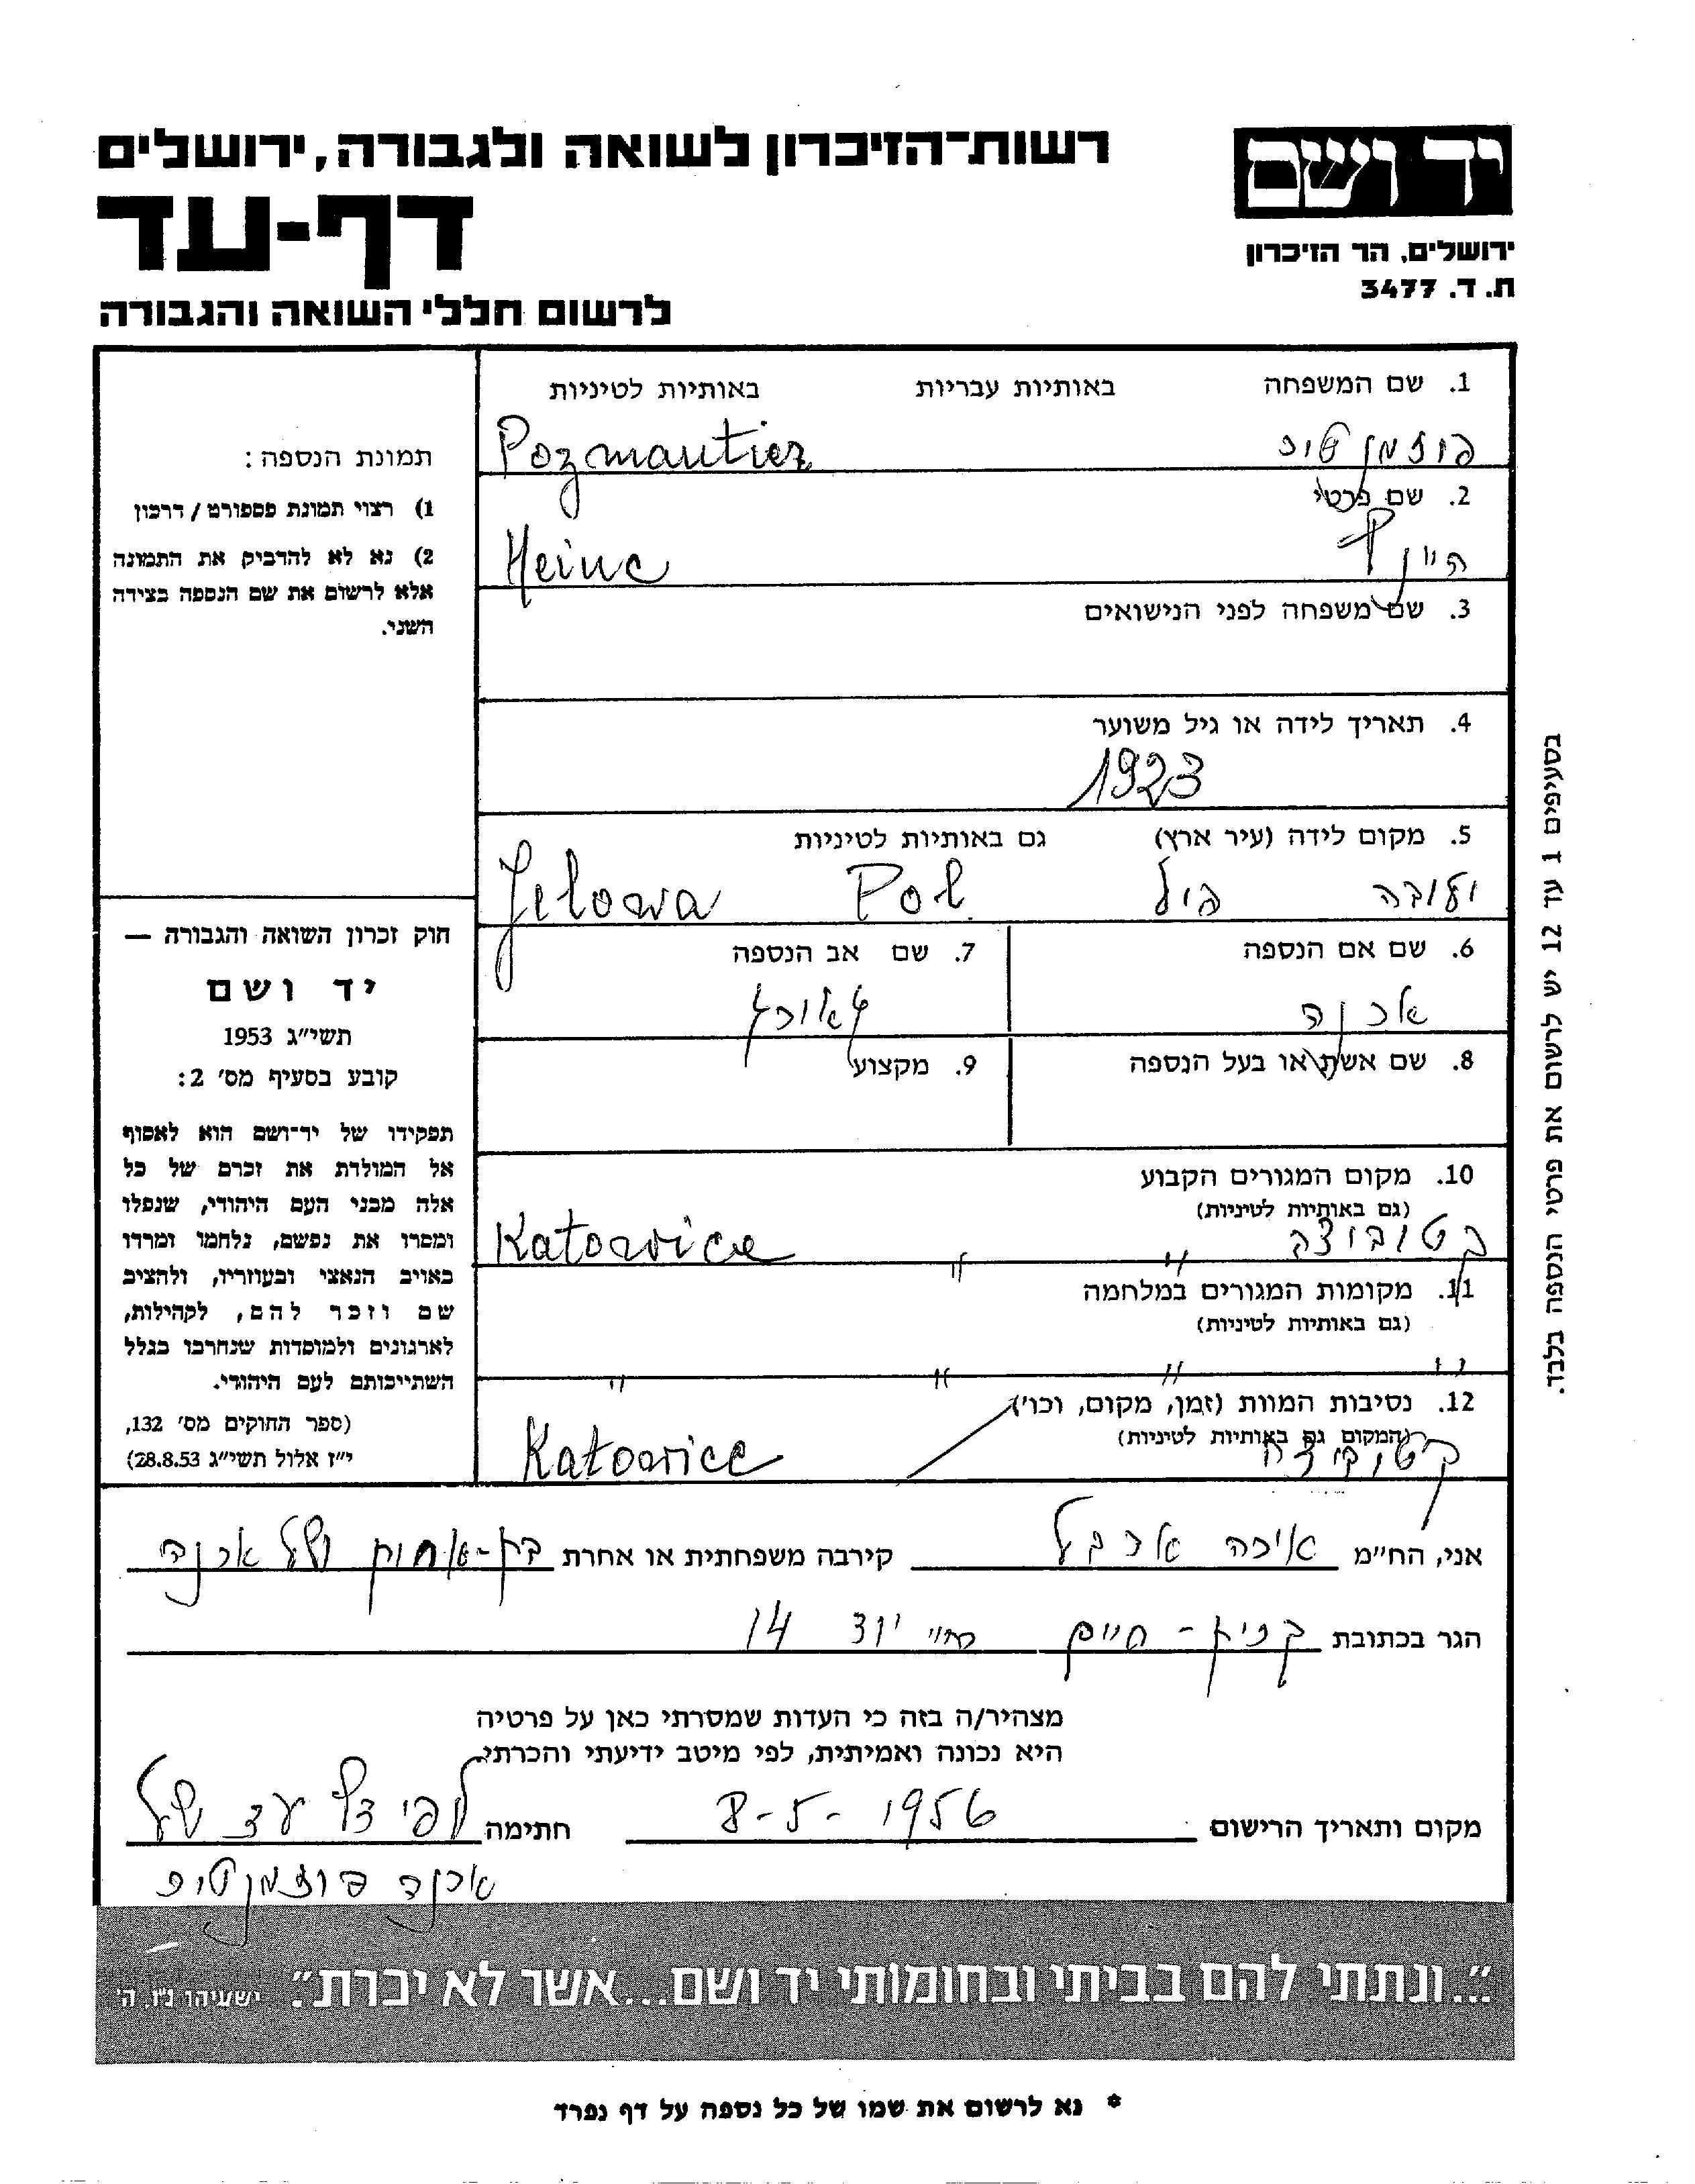 יד ושם
ירושלים, הר הזיכרון
ת. ד. 3477
רשות-הזיכרון לשואה ולגבורה, ירושלים
דף-עד
לרשום חללי השואה והגבורה
1. שם המשפחה באותיות עבריות באותיות לטיניות
פוזמנטיר Pozmantier
2. שם פרטי
Heinc
3. שם משפחה לפני הנישואים
4. תאריך לידה או גיל משוער
1923
5. מקום לידה (עיר ארץ) גם באותיות לטיניות
ילובה פול Jelowa Pol.
6. שם אם הנספה 7. שם אב הנספה
ארנה
8. שם אשת או בעל הנספה 9. מקצוע
10. מקום המגורים הקבוע
(גם באותיות לטיניות)
קטוביצה " " Katowice
11. מקומות המגורים במלחמה
(גם באותיות לטיניות)
" " " "
12. נסיבות המוות (זמן, מקום, וכו')
(המקום גם באותיות לטיניות)
קטוביצה Katowice
תמונת הנספה:
1) רצוי תמונת פספורט / דרכון
2) נא לא להדביק את התמונה
אלא לרשום את שם הנספה בצידה
השני.
חוק זכרון השואה והגבורה —
יד ושם
תשי"ג 1953
קובע בסעיף מס' 2:
תפקידו של יד-ושם הוא לאסוף
אל המולדת את זכרם של כל
אלה מבני העם היהודי, שנפלו
ומסרו את נפשם, נלחמו ומרדו
באויב הנאצי ובעוזריו, ולהציב
שם וזכר להם, לקהילות,
לארגונים ולמוסדות שנחרבו בגלל
השתייכותם לעם היהודי.
(ספר החוקים מס' 132,
י"ז אלול תשי"ג 28.8.53)
בסעיפים 1 עד 12 יש לרשום את פרטי הנספה בלבד.
אני, הח"מ קירבה משפחתית או אחרת בן-אחות של ארנה
הגר בכתובת קרית-חיים 14
מצהיר/ה בזה כי העדות שמסרתי כאן על פרטיה
היא נכונה ואמיתית, לפי מיטב ידיעתי והכרתי.
מקום ותאריך הרישום 8-5-1956 חתימה לפי דף עד של
ארנה פוזמנטיר
"...ונתתי להם בביתי ובחומותי יד ושם...אשר לא יכרת". ישעיהו נ"ו, ה'
* נא לרשום את שמו של כל נספה על דף נפרד